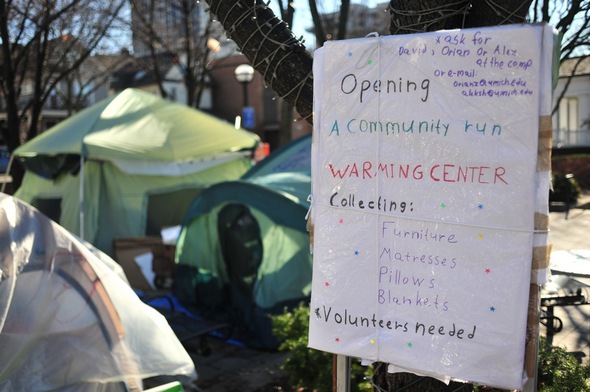 *ask for
David, Orian or Alex
at the camp
or e-mail
orianz@umich.edu
Opening
A Community run
WARMING CENTER
Collecting:
Furniture
Matresses
Pillows
Blankets
*Volunteers needed